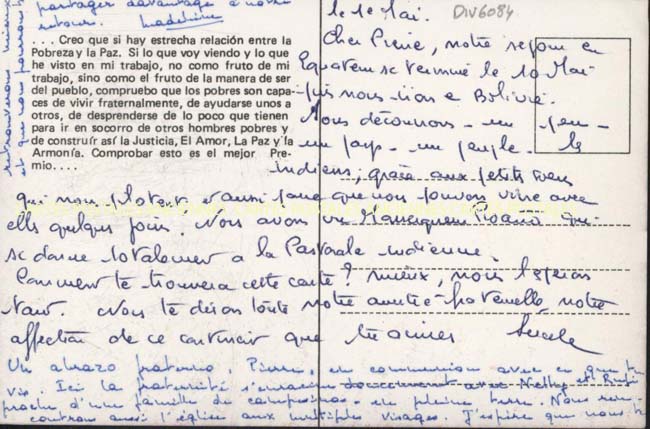 le 1er Mai. DIV6084
Cher Pierre, notre séjour en
Equateur se termine le 10 Mai
puis nous irons en Bolivie.
Nous découvrons un peu
un pays un peuple les
indiens, grâce aux petits sœurs
qui nous pilotent, et aussi parce que nous pouvons vivre avec
elles quelques jours. Nous avons vu Monseigneur Proaño qui
se donne totalement a la Pastorale indienne.
Comment te trouvera cette carte? mieux, nous l'espérons
tant. Nous te disons toute notre amitié fraternelle, notre
affection de ce continent que tu aimes
. . . . Creo que si hay estrecha relación entre la
Pobreza y la Paz. Si lo que voy viendo y lo que
he visto en mi trabajo, no como fruto de mi
trabajo, sino como el fruto de la manera de ser
del pueblo, compruebo que los pobres son capa-
ces de vivir fraternalmente, de ayudarse unos a
otros, de desprenderse de lo poco que tienen
para ir en socorro de otros hombres pobres y
de construir así la Justicia, El Amor, La Paz y la
Armonía. Comprobar esto es el mejor Pre-
mio . . . .
Un abrazo fraterno, Pierre, en communion avec ce que tu
vis. Ici la fraternité s'enracine doucement avec Nelly et
proche d'une famille de campesinos en pleine terre. Nous ren-
controns aussi l'église aux multiples visages. J'espère que nous
retrouverons mieux
et que nous pourrons
partager davantage à notre
retour. Madeleine